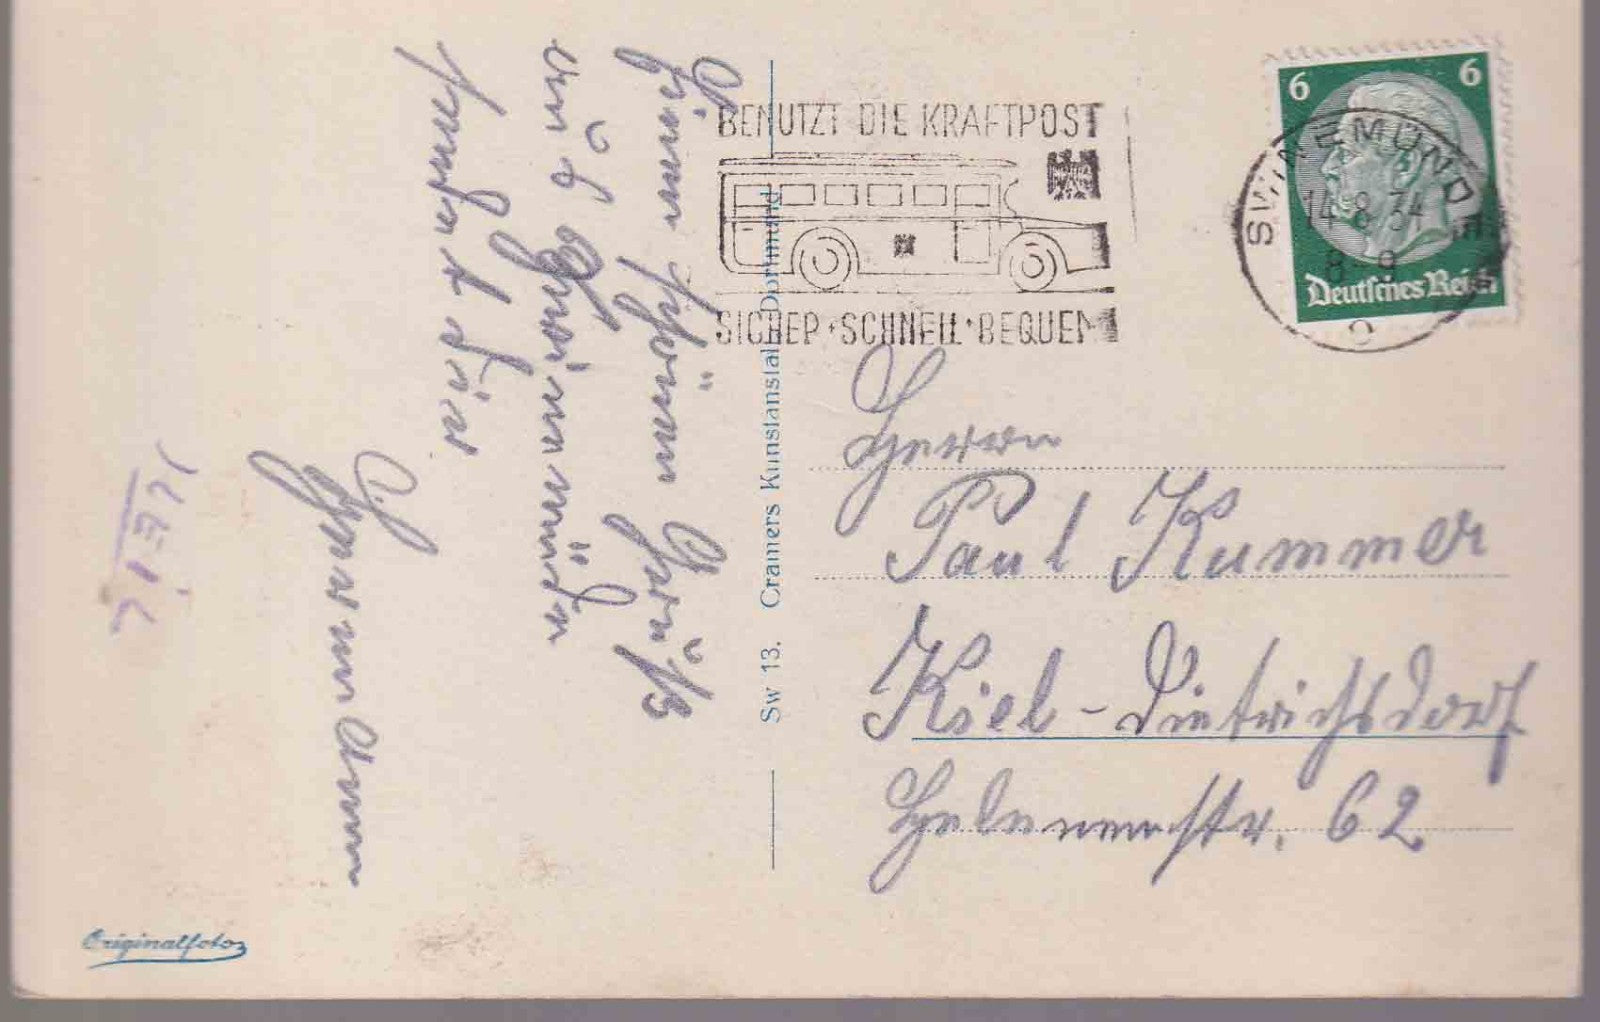 Einen schönen Gruß
aus Swinemünde
sendet Dir
BENUTZT DIE KRAFTPOST
SICHER · SCHNELL · BEQUEM
6 6
Deutsches Reich
SWINEMÜNDE
14.8.34
8-9
Sw 13. Cramers Kunstanstalt Dortmund
Herrn
Paul Kummer
Kiel-Dietrichsdorf
Helenenstr. 62
Originalfoto